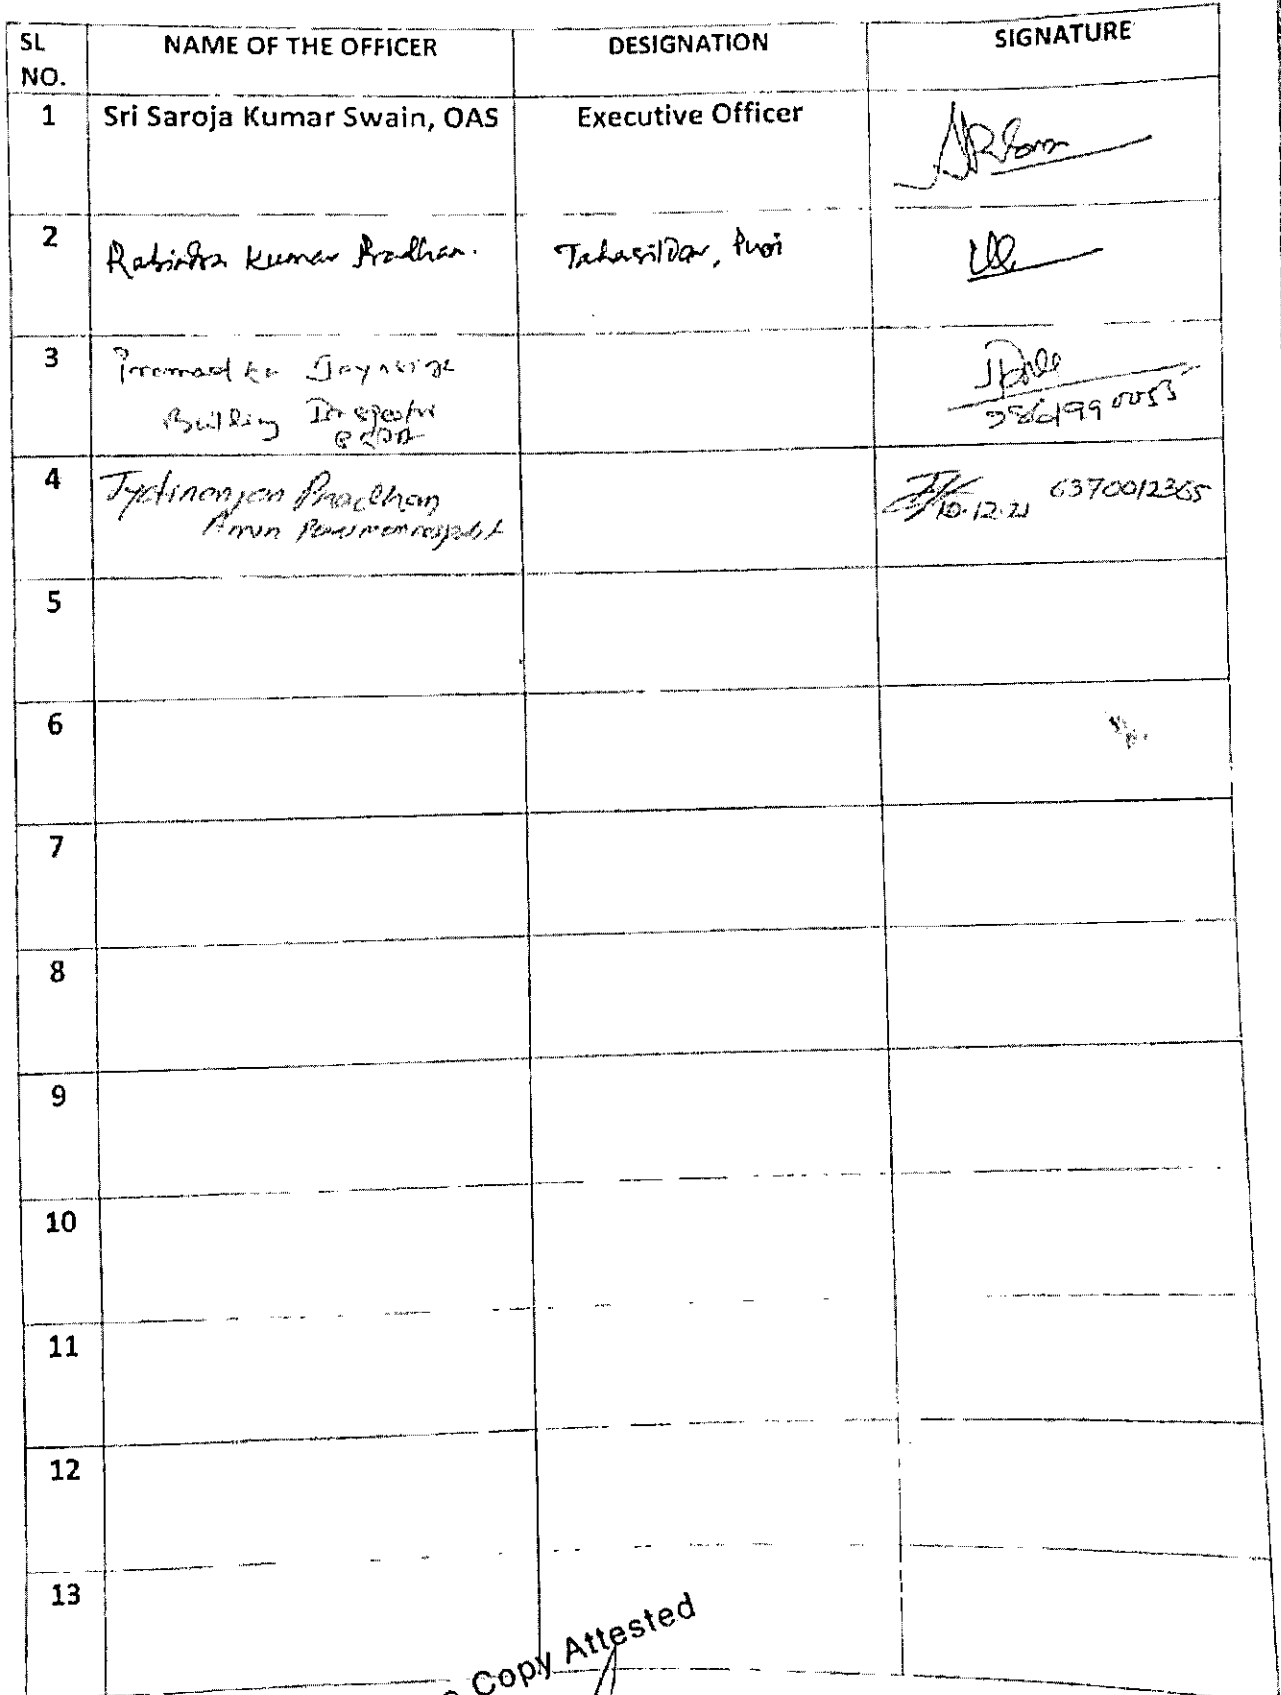 SL
NO.
NAME OF THE OFFICER
DESIGNATION
SIGNATURE
1
Sri Saroja Kumar Swain, OAS
Executive Officer
2
Rabindra Kumar Pradhan.
Tahasildar, Puri
3
Building
4
Jyotiranjan Pradhan
Amin
10.12.21 6370012365
5
6
7
8
9
10
11
12
13
Copy Attested